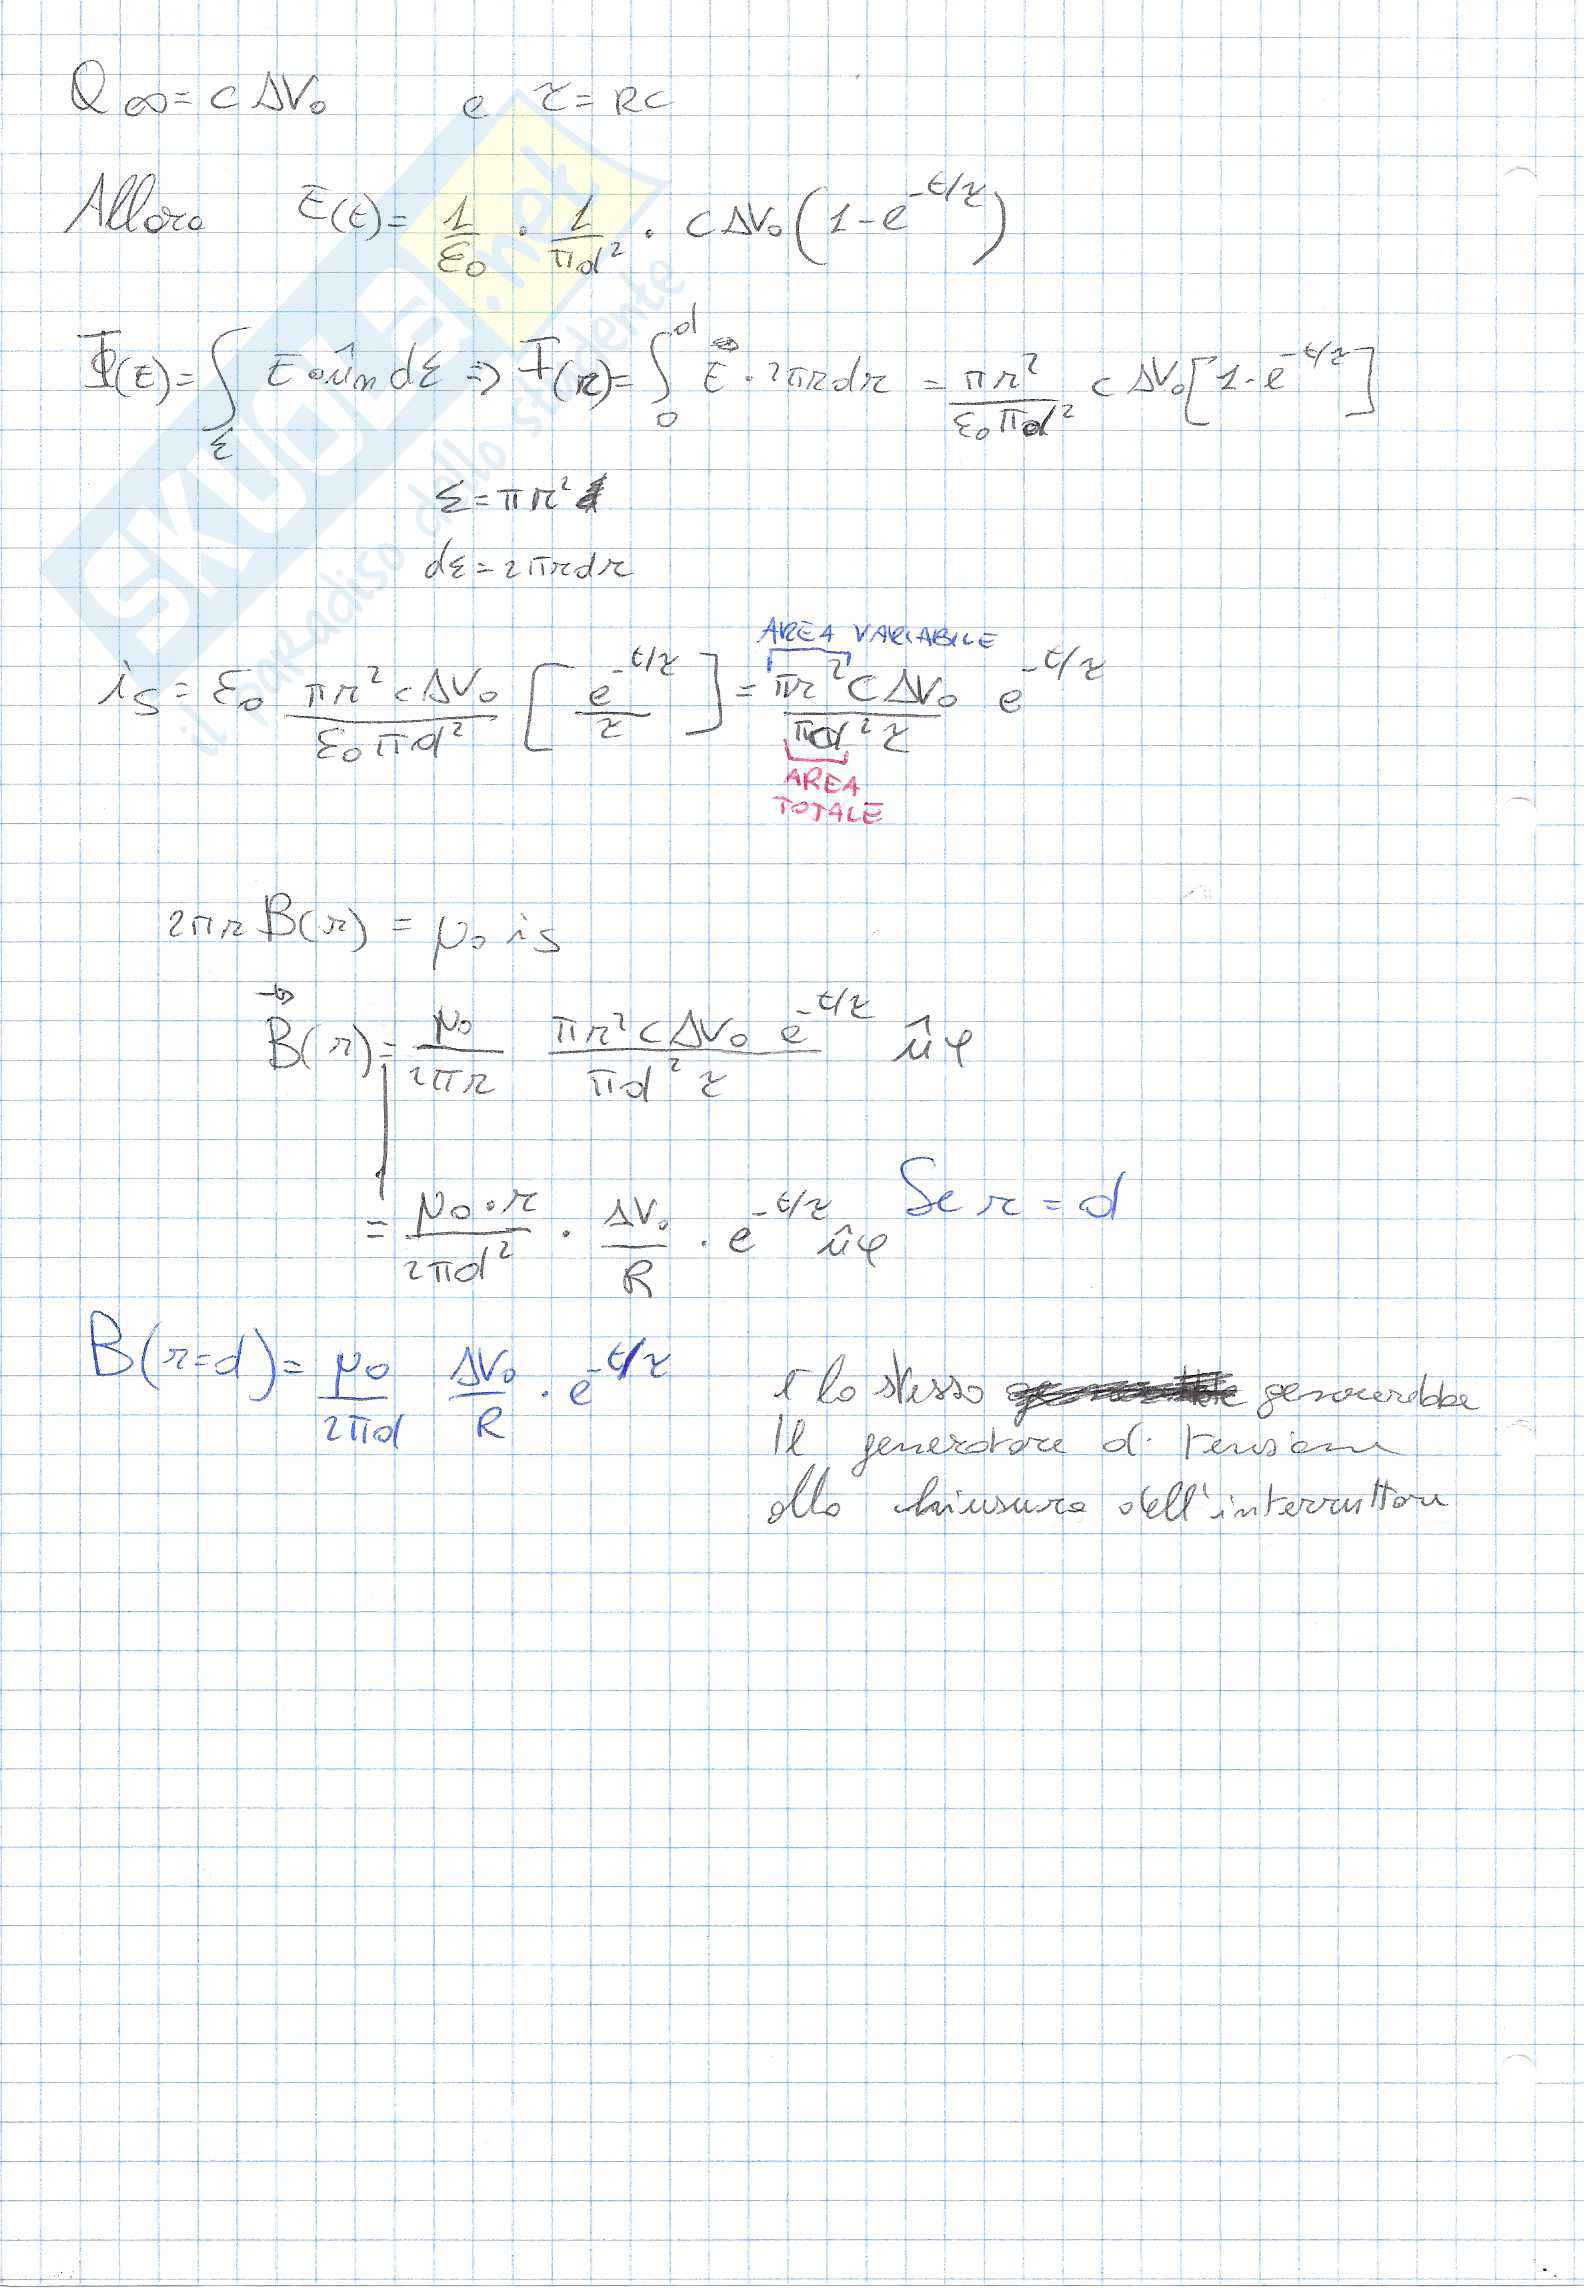 Q∞ = C ΔV₀ e τ = RC
Allora E(t) = 1/ε₀ · 1/πd² · CΔV₀ (1 - e^-t/τ)
Φ(t) = ∫_Σ E • ûn dΣ ⇒ Φ(r) = ∫₀^d E · 2πrdr = πr²/ε₀πd² CΔV₀ [1 - e^-t/τ]
Σ = πr²
dΣ = 2πrdr
AREA VARIABILE
is = ε₀ πr²CΔV₀/ε₀πd² [e^-t/τ / τ] = πr²CΔV₀/πd²τ e^-t/τ
AREA
TOTALE
2πr B(r) = μ₀ is
B⃗(r) = μ₀/2πr πr²CΔV₀ e^-t/τ / πd²τ ûφ
= μ₀·r/2πd² · ΔV₀/R · e^-t/τ ûφ Se r = d
B(r=d) = μ₀/2πd ΔV₀/R · e^-t/τ
È lo stesso genererebbe
Il generatore di tensione
alla chiusura dell'interruttore
SKUOLA.net
il paradiso dello studente